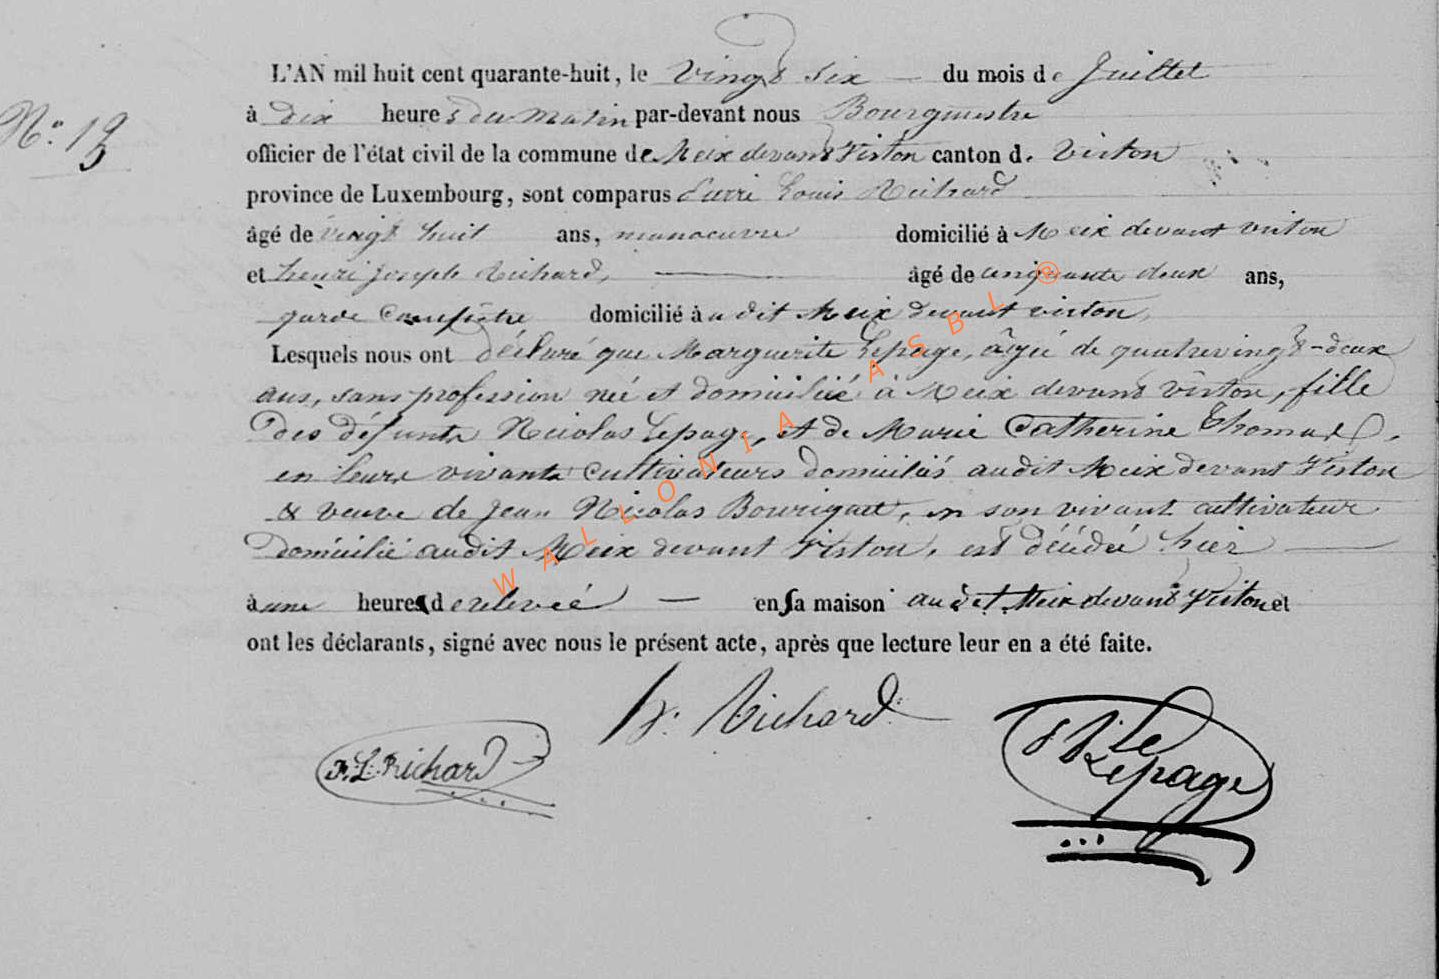 L'AN mil huit cent quarante-huit, le vingt six — du mois de Juillet
à dix heures du matin par-devant nous Bourgmestre
N.° 13
officier de l'état civil de la commune de Meix devant Virton canton d. Virton
province de Luxembourg, sont comparus Pierre Louis Richard
âgé de vingt huit ans, manoeuvre domicilié à Meix devant virton
et henri joseph Richard, — âgé de cinquante deux ans,
garde Champêtre domicilié à udit Meix devant virton,
Lesquels nous ont déclaré que Marguerite Lepage, âgée de quatrevingt-deux
ans, sans profession née et domiciliée à Meix devant virton, fille
Des défunts Nicolas Lepage, et de Marie Catherine Thomas,
en leurs vivants cultivateurs domiciliés audit Meix devant Virton
& veuve de Jean Nicolas, en son vivant cultivateur
Domicilié audit Meix devant Virton, est décédée hier —
à une heure de relevée — en sa maison audit Meix devant Virton et
ont les déclarants, signé avec nous le présent acte, après que lecture leur en a été faite.
h. Richard
P. L. Richard
Lepage
WALLONIA ASBL ®